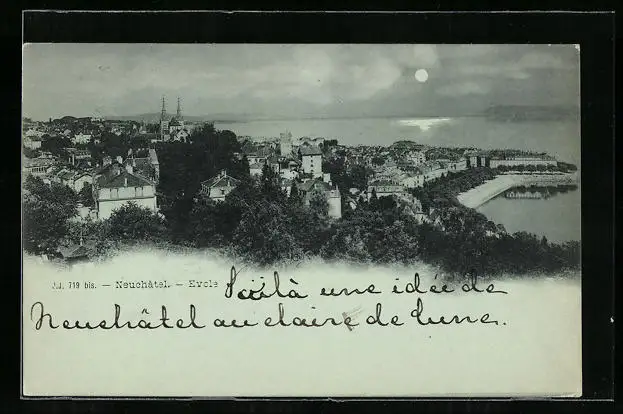 J.J. 719 bis. – Neuchâtel. – Evole Voilà une idée de
Neuchâtel au claire de lune.